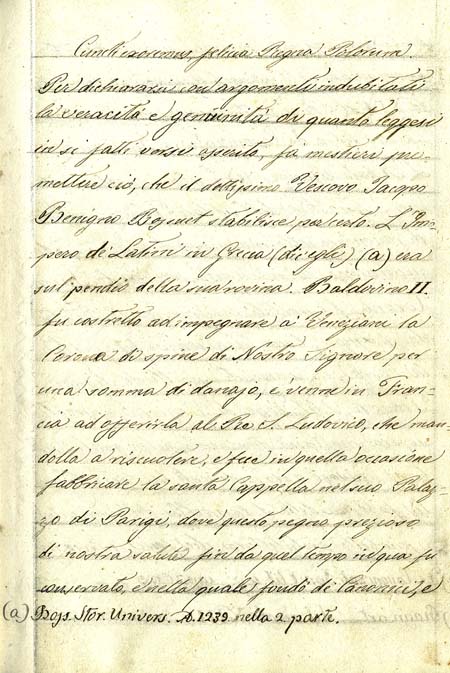 Cuncti exoremus, felicia Regna Polorum.
Per dichiarazion con argomenti indubitati
la veracità e genuinità di quanto leggesi
in sì fatti versi asserito, fa mestieri pre-
mettere ciò, che il dottissimo Vescovo Jacopo
Benigno Bossuet stabilisce per certo. L'Im-
pero de' Latini in Grecia (dic'egli) (a) era
sul pendio della sua rovina. Baldovino II.
fu costretto ad impegnare a' Veneziani la
Corona di spine di Nostro Signore per
una somma di danajo, e venne in Fran-
cia ad offerirla al Re S. Ludovico, che man-
dolla a riscuotere, e fece in quella occasione
fabbricare la santa Cappella nel suo Palaz-
zo di Parigi, dove questo pegno prezioso
di nostra salute fin da quel tempo in qua fu
conservato, e nella quale fondò de' Canonici, e
(a) Boss. Stor. Univers. A. 1239. nella 2 parte.